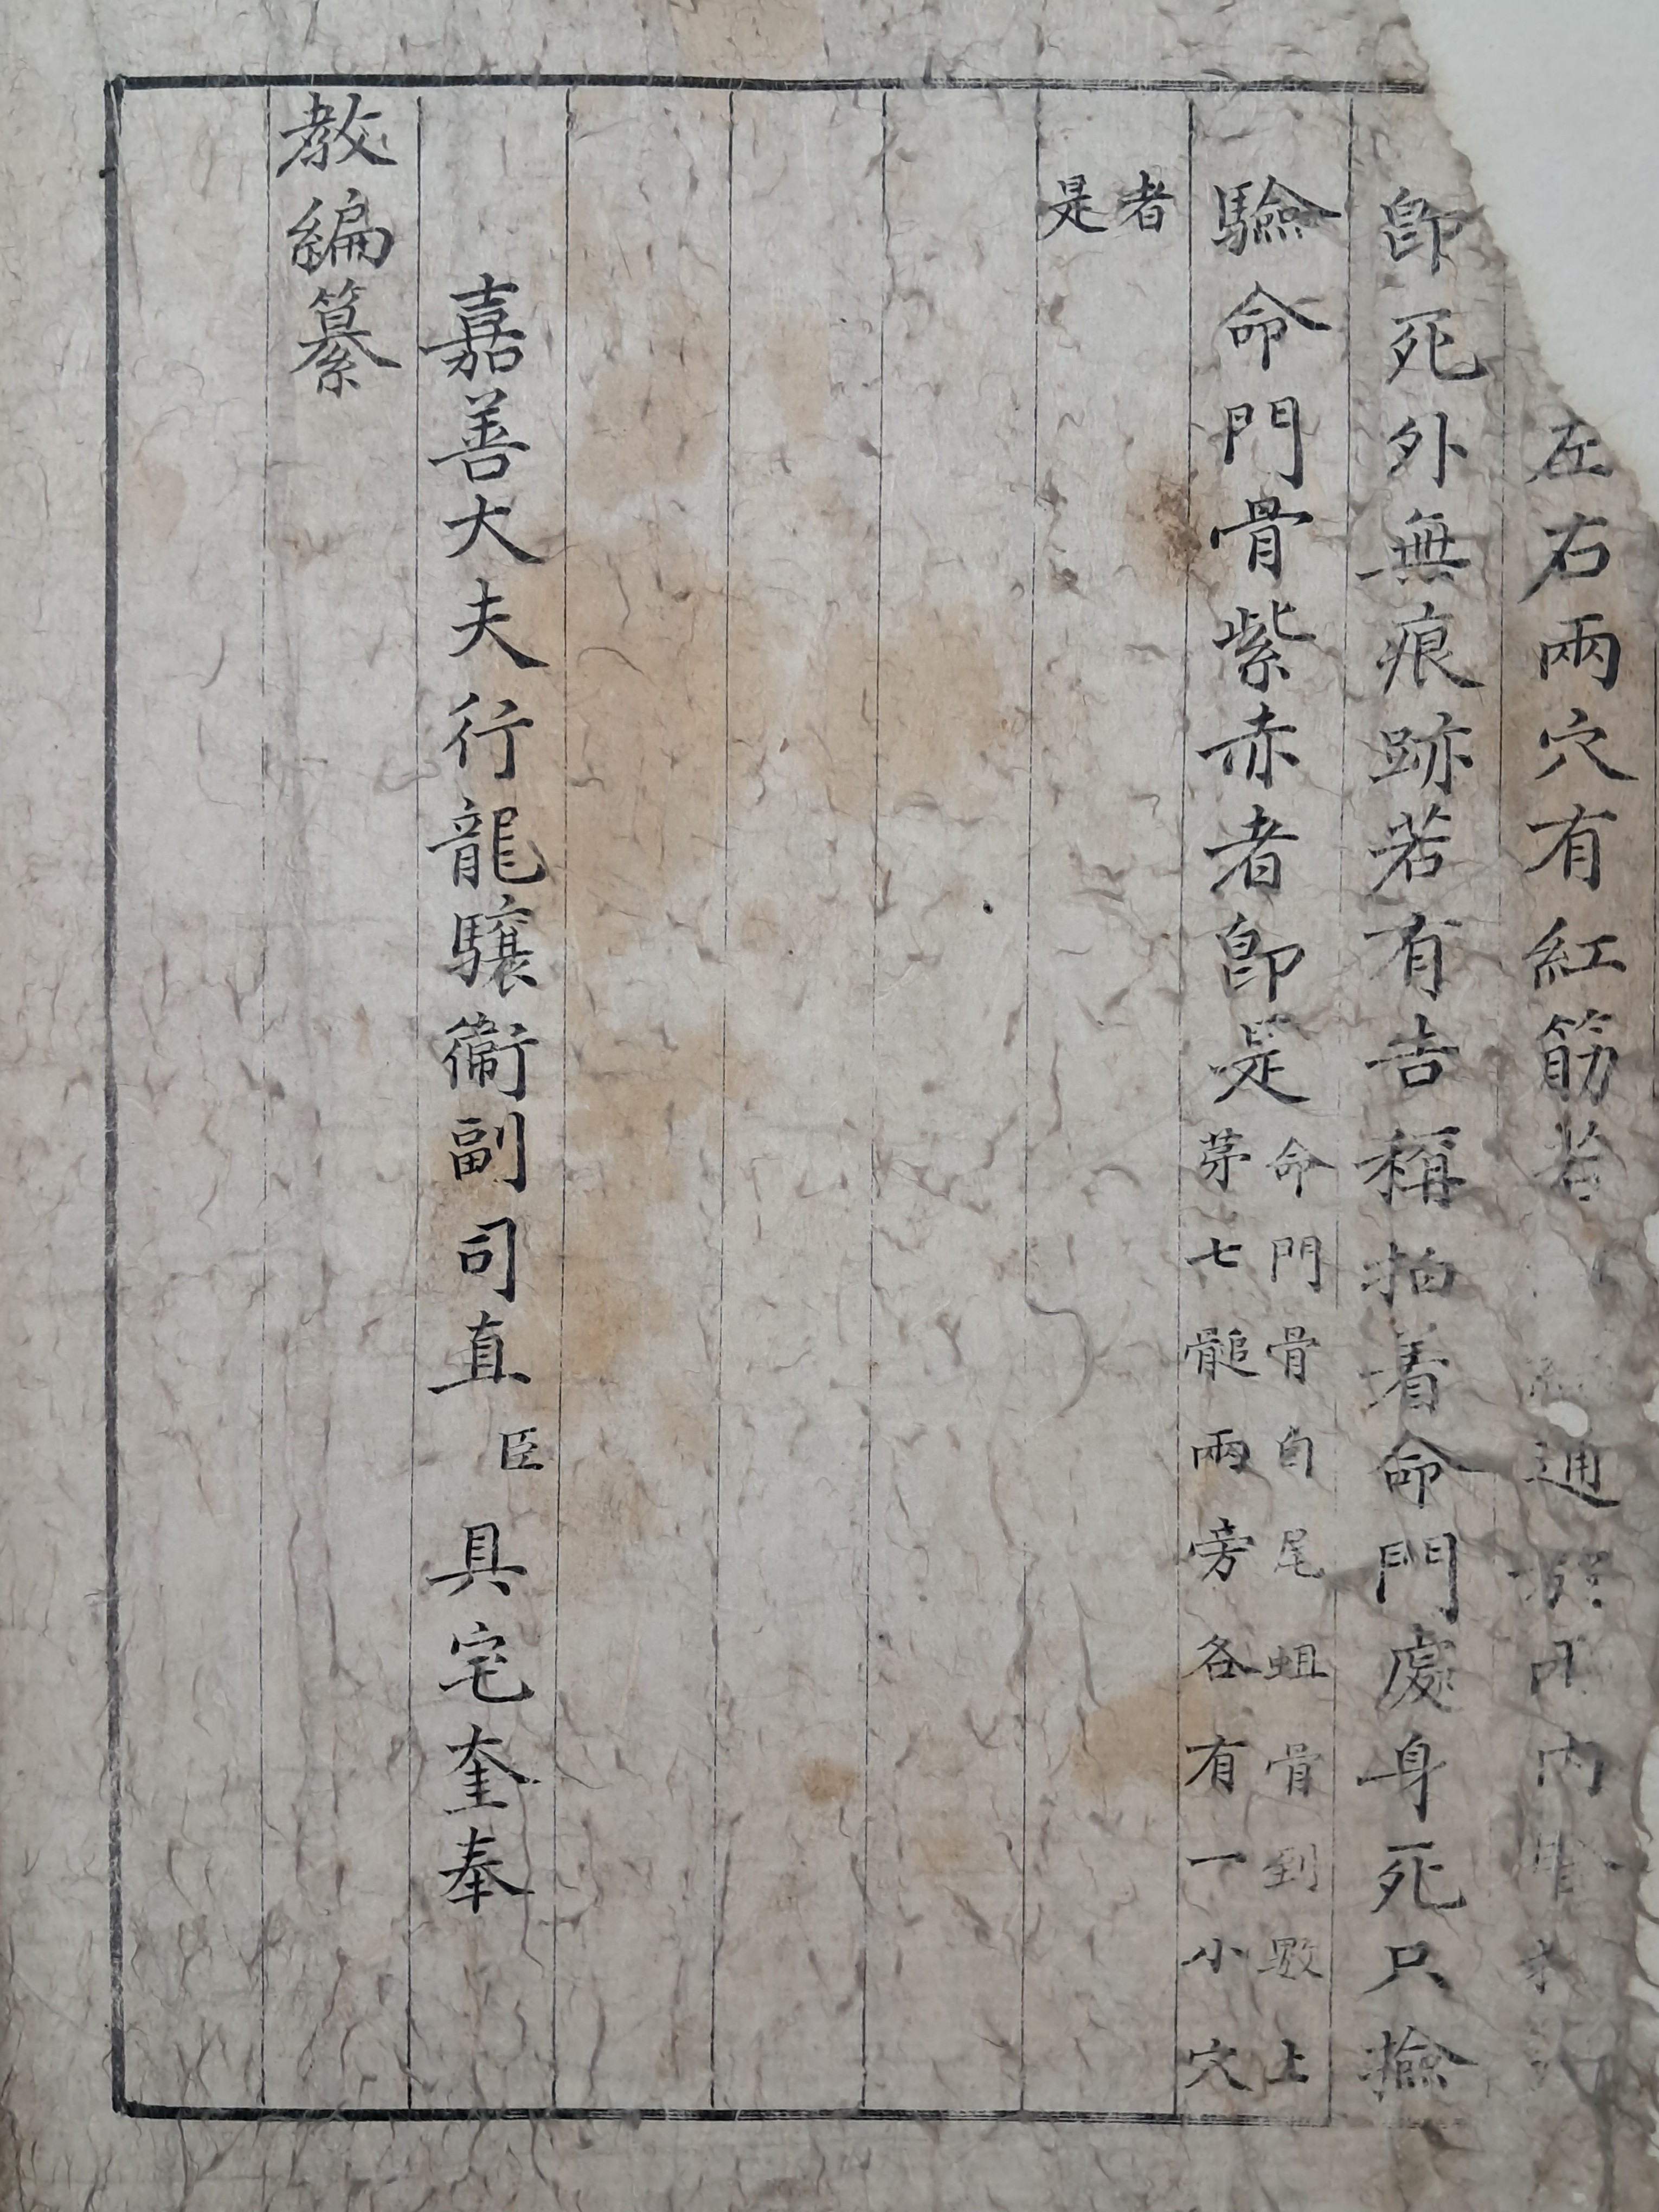 左右兩穴有紅筋若通於內
卽死外無痕跡若有告稱拍着命門處身死只撿
驗命門骨紫赤者卽是命門骨自尾蛆骨到數上
茅七髄兩旁各有一小穴
者
是
嘉善大夫行龍驤衞副司直臣具宅奎奉
教編纂